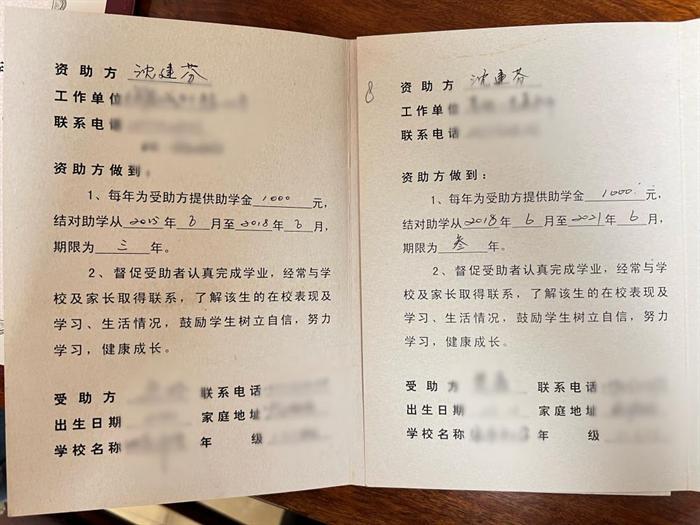 资助方 沈建芬
工作单位
联系电话
资助方做到：
1、每年为受助方提供助学金 1000 元，
结对助学从 2015 年 6 月至 2018 年 6 月，
期限为 三 年。
2、督促受助者认真完成学业，经常与学
校及家长取得联系，了解该生的在校表现及
学习、生活情况，鼓励学生树立自信，努力
学习，健康成长。
受助方 联系电话
出生日期 家庭地址
学校名称 年级
8
资助方 沈建芬
工作单位
联系电话
资助方做到：
1、每年为受助方提供助学金 1000 元，
结对助学从 2018 年 6 月至 2021 年 6 月，
期限为 叁 年。
2、督促受助者认真完成学业，经常与学
校及家长取得联系，了解该生的在校表现及
学习、生活情况，鼓励学生树立自信，努力
学习，健康成长。
受助方 联系电话
出生日期 家庭地址
学校名称 年级